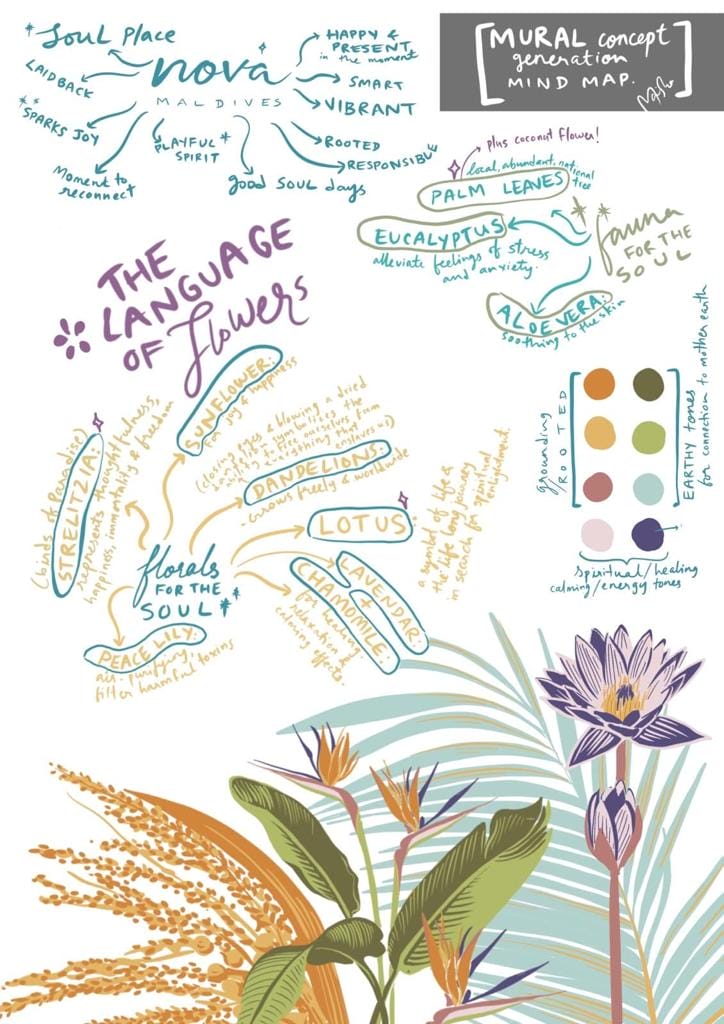 Soul Place
LAIDBACK
SPARKS JOY
Moment to
reconnect
nova
MALDIVES
PLAYFUL
SPIRIT
good SOUL days
HAPPY &
PRESENT
in the moment
SMART
VIBRANT
ROOTED
RESPONSIBLE
MURAL concept
generation
MIND MAP.
plus coconut flower!
local, abundant, national
tree
PALM LEAVES
EUCALYPTUS
alleviate feelings of stress
and anxiety.
ALOE VERA:
soothing to the skin
fauna
FOR THE
SOUL
THE
LANGUAGE
OF flowers
SUNFLOWER:
joy & happiness
(birds of Paradise)
STRELITZIA:
represents thoughtfulness,
happiness, immortality & freedom
(closing eyes & blowing a dried
dandelion symbolizes the
ability to free ourselves from
everything that enslaves us)
DANDELIONS:
- Grows freely & worldwide
LOTUS
a symbol of life &
the life long journey
in search for spiritual
enlightenment.
LAVENDAR
+
CHAMOMILE:
for healing,
relaxation &
calming effects.
florals
FOR THE
SOUL
PEACE LILY:
air-purifying,
filter harmful toxins
grounding
ROOTED
EARTHY tones
for connection to mother earth
spiritual/healing
calming/energy tones